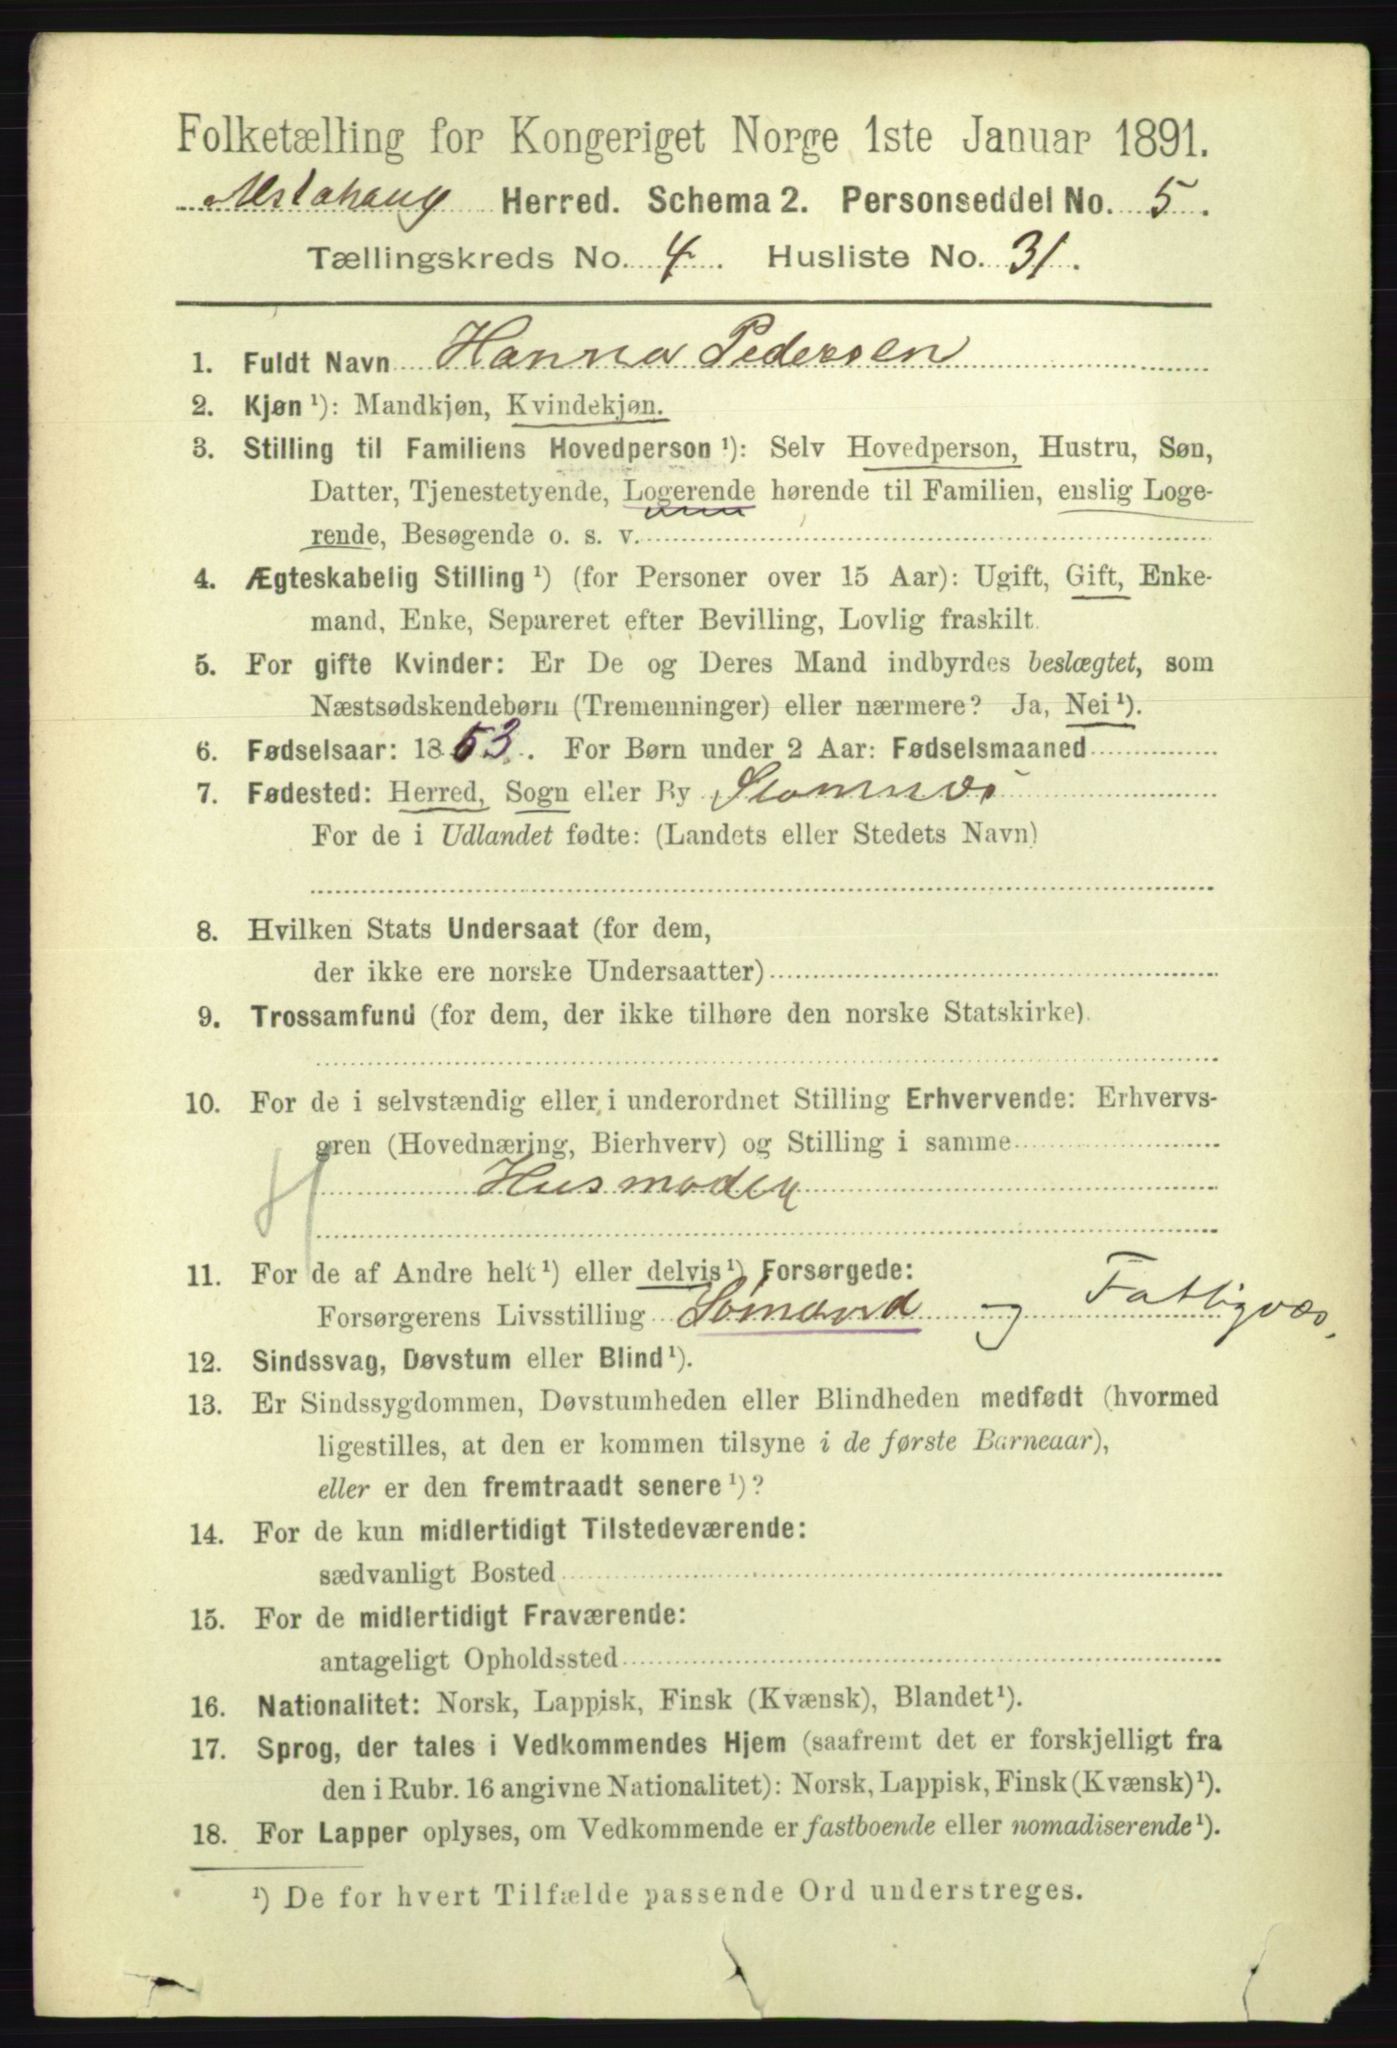 Folketælling for Kongeriget Norge 1ste Januar 1891.
Alstahaug Herred. Schema 2. Personseddel No. 5.
Tællingskreds No. 4. Husliste No. 31.
1. Fuldt Navn Hanna Pedersen
2. Kjøn ¹): Mandkjøn, Kvindekjøn.
3. Stilling til Familiens Hovedperson ¹): Selv Hovedperson, Hustru, Søn,
Datter, Tjenestetyende, Logerende hørende til Familien, enslig Loge-
rende, Besøgende o. s. v.
4. Ægteskabelig Stilling ¹) (for Personer over 15 Aar): Ugift, Gift, Enke-
mand, Enke, Separeret efter Bevilling, Lovlig fraskilt.
5. For gifte Kvinder: Er De og Deres Mand indbyrdes beslægtet, som
Næstsødskendebørn (Tremenninger) eller nærmere? Ja, Nei ¹).
6. Fødselsaar: 1853. For Børn under 2 Aar: Fødselsmaaned
7. Fødested: Herred, Sogn eller By
For de i Udlandet fødte: (Landets eller Stedets Navn)
8. Hvilken Stats Undersaat (for dem,
der ikke ere norske Undersaatter)
9. Trossamfund (for dem, der ikke tilhøre den norske Statskirke).
10. For de i selvstændig eller i underordnet Stilling Erhvervende: Erhvervs-
gren (Hovednæring, Bierhverv) og Stilling i samme
H Husmoder
11. For de af Andre helt ¹) eller delvis ¹) Forsørgede:
Forsørgerens Livsstilling Sømand og Fattigvæs.
12. Sindssvag, Døvstum eller Blind ¹).
13. Er Sindssygdommen, Døvstumheden eller Blindheden medfødt (hvormed
ligestilles, at den er kommen tilsyne i de første Barneaar),
eller er den fremtraadt senere ¹)?
14. For de kun midlertidigt Tilstedeværende:
sædvanligt Bosted
15. For de midlertidigt Fraværende:
antageligt Opholdssted
16. Nationalitet: Norsk, Lappisk, Finsk (Kvænsk), Blandet ¹).
17. Sprog, der tales i Vedkommendes Hjem (saafremt det er forskjelligt fra
den i Rubr. 16 angivne Nationalitet): Norsk, Lappisk, Finsk (Kvænsk) ¹).
18. For Lapper oplyses, om Vedkommende er fastboende eller nomadiserende ¹).
¹) De for hvert Tilfælde passende Ord understreges.